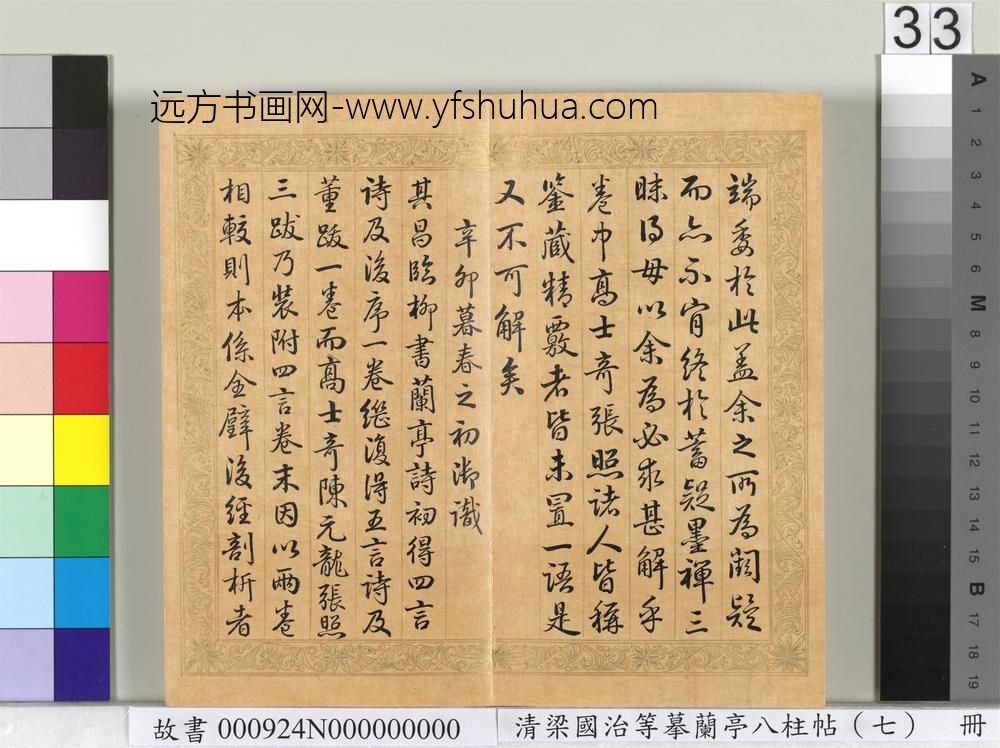 33
远方书画网-www.yfshuhua.com
端委於此盖余之所為闕疑
而亦不肯終於蓄疑墨禪三
昧得毋以余為必求甚解乎
卷中高士奇張照諸人皆稱
鑒藏精覈者皆未置一語是
又不可解矣
辛卯暮春之初御識
其昌臨柳書蘭亭詩初得四言
詩及後序一卷繼復得五言詩及
董跋一卷而高士奇陳元龍張照
三跋乃裝附四言卷末因以兩卷
相較則本係全璧後經剖析者
A
1
2
3
4
5
6
M
8
9
10
11
12
13
14
15
B
17
18
19
故書 000924N000000000
清梁國治等摹蘭亭八柱帖（七） 冊